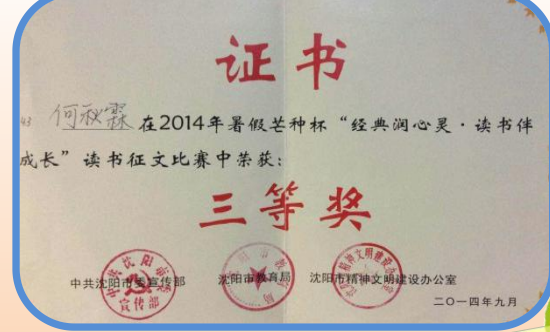 证书
43 何秋霖 在2014年暑假芒种杯“经典润心灵·读书伴
成长”读书征文比赛中荣获：
三等奖
中共沈阳市委宣传部 沈阳市教育局 沈阳市精神文明建设办公室
宣传部
二〇一四年九月